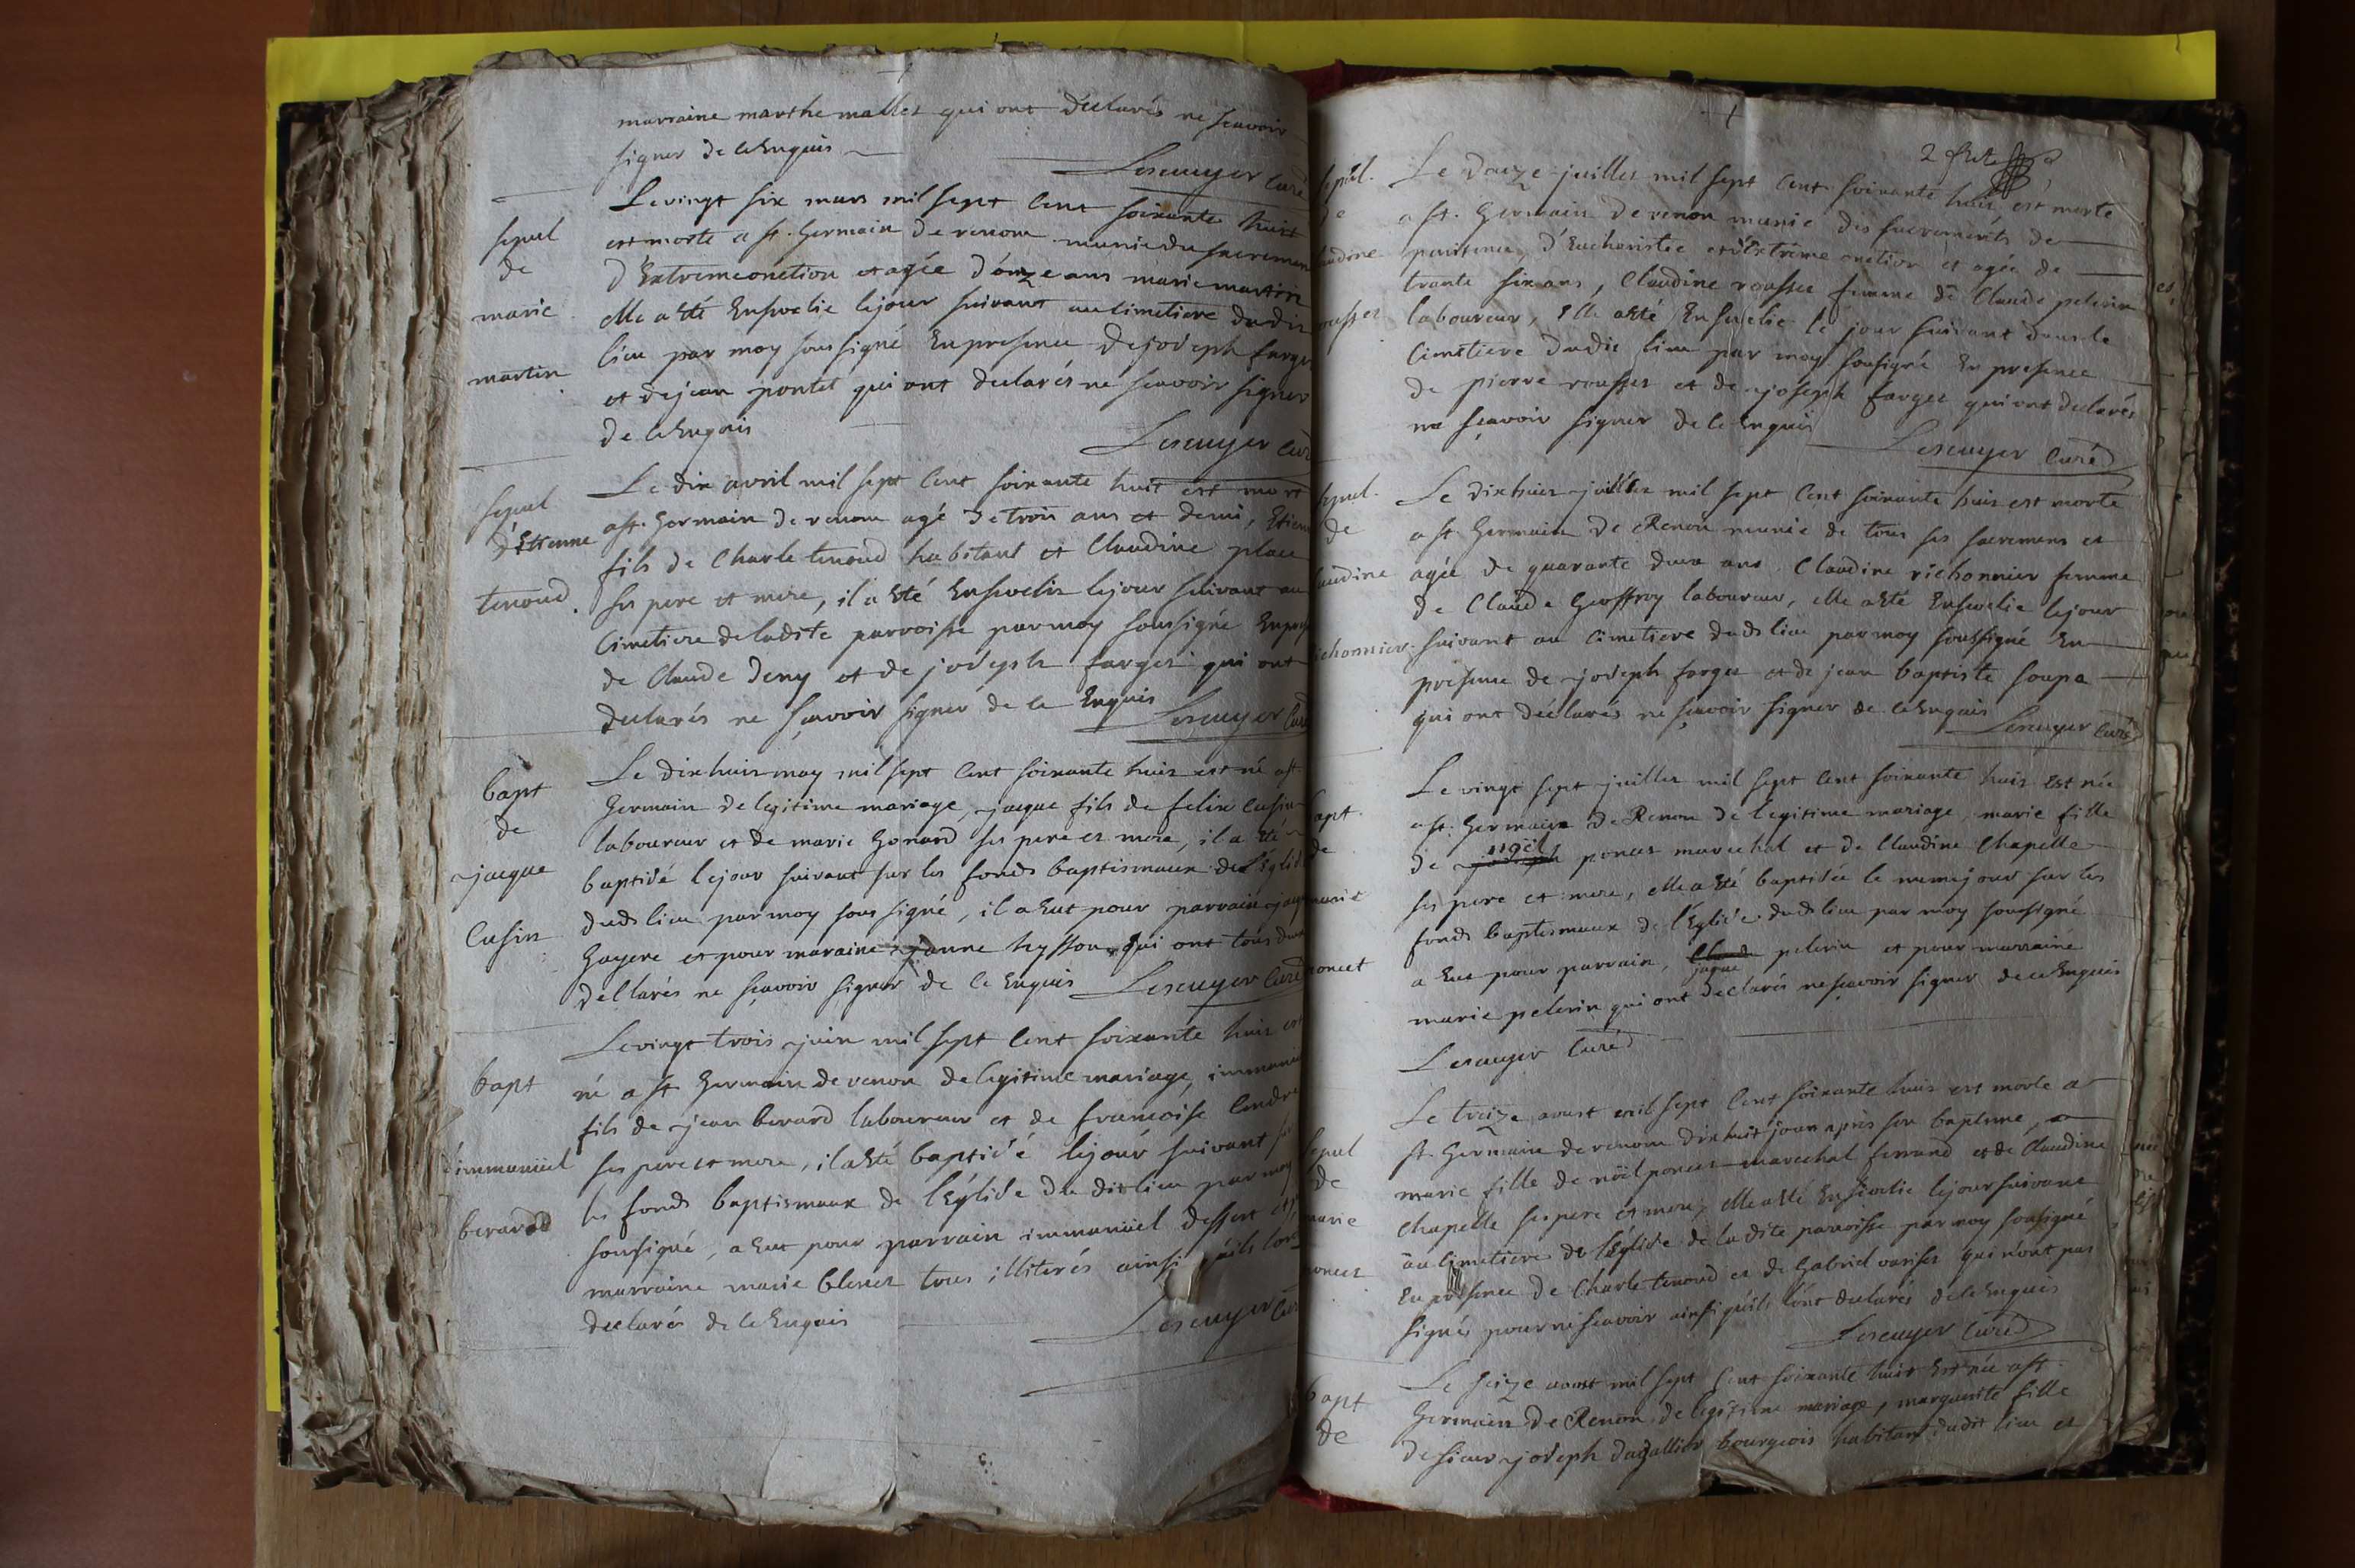 marraine marthe mallet qui ont déclarés ne scavoir
signer de ce Enquis
Lescuyer curé
sepul
de
marie
martin
Le vingt six mars mil sept cent soixante huit
est morte a st. Germain de renom munie du sacremen
d'Extremeonction et agée d'onze ans marie martin
elle a Eté Ensevelie le jour suivant au cimetiere dudit
lieu par moy soussigné En presence de joseph farge
et de jean pontet qui ont declarés ne scavoir signer
de ce Enquis
Lescuyer curé
sepul
d'Etienne
tenoud.
Le dix avril mil sept cent soixante huit est mort
a st. Germain de renom agé de trois ans et demi, Etienne
fils de Charle tenoud habitant et Claudine place
ses pere et mere, il a Eté Ensevelis le jour suivant au
cimetiere de ladite parroisse par moy soussigné En pres
de Claude Deny et de joseph farget qui ont
declarés ne scavoir signer de ce Enquis
Lescuyer Curé
bapt
de
jacque
Cusin
Le dixhuit may mil sept cent soixante huit est né a st
Germain de legitime mariage, jacque fils de felix Cusin
laboureur et de marie Gonard ses pere et mere, il a Eté
baptisé le jour suivant sur les fonds baptismaux de l'Eglise
dud lieu par moy sous signé, il a Eut pour parrain jacq
Gayere et pour maraine jeanne hysson qui ont tous deux
dellarés ne scavoir signer de ce Enquis Lescuyer Curé
bapt
d'immanuël
berard
Le vingt trois juin mil sept cent soixante huit est
né a st Germain de renon de legitime mariage, immanuel
fils de jean berard laboureur et de francoise
ses pere et mere, il a Eté baptisé le jour suivant sur
les fonds baptismaux de l'Eglise du dit lieu par moy
sousigné, a Eut pour parrain immanuël dessert et
marraine marie blenet tous illiterés ainsi qu'ils l'ont
declarés de ce Enquis
Lescuyer Curé
2
sepul.
de
claudine
rousset
Le douze juillet mil sept cent soixante huit est morte
a st. Germain de renon munie des sacrements de
penitence, d'Eucharistie et d'Extreme onction et agée de
trante six ans, Claudine rousset femme de Claude pelerin
laboureur, Elle a Eté Ensevelie le jour suivant dans le
Cimetiere dudit lieu par moy sousigné En presence
de pierre rousset et de joseph farget qui ont declarés
ne scavoir signer de ce Enquis
Lescuyer Curé
sepul.
de
claudine
richonnier.
Le dixhuit juillet mil sept cent soixante huit est morte
a st. Germain de Renon munie de tous ses sacremens et
agée de quarante deux ans Claudine richonnier femme
de Claude Geoffroy laboureur, elle a Eté Ensevelie le jour
suivant au cimetiere dud lieu par moy soussigné En
presence de joseph farget et de jean baptiste soupa
qui ont déclarés ne scavoir signer de ce Enquis
Lescuyer Curé
bapt.
de
marie
poncet
Le vingt sept juillet mil sept cent soixante huit Est née
a st. Germain de Renon de legitime mariage, marie fille
de joseph nöel poncet marechal et de Claudine Chapelle
ses pere et mere, elle a Eté baptisée le meme jour sur les
fonds baptismaux de l'Eglise dud lieu par moy soussigné
a Eut pour parrain, Claude jaque pelerin et pour marraine
marie pelerin qui ont declarés ne scavoir signer de ce Enquis
Lescuyer Curé
sepul
de
marie
poncet
Le treize avust mil sept cent soixante huit est morte a
st. Germain de renom dixhuit jour apres son bapteme,
marie fille de nöel poncet marechal ferrand et de Claudine
Chapelle ses pere et mere, elle a Eté Ensevelie le jour suivant
au cimetiere de l'Eglise de la dite paroisse par moy sousigné
En presence de Charle tenoud et de Gabriel variset qui n'ont pas
signés pour ne scavoir ainsi qu'ils l'ont declarés de ce Enquis
Lescuyer Curé
bapt
de
Le seize avost mil sept cent soixante huit Est née a st.
Germain de Renon de legitime mariage, marguerite fille
de sieur joseph dagallier bourgeois habitant dudit lieu et